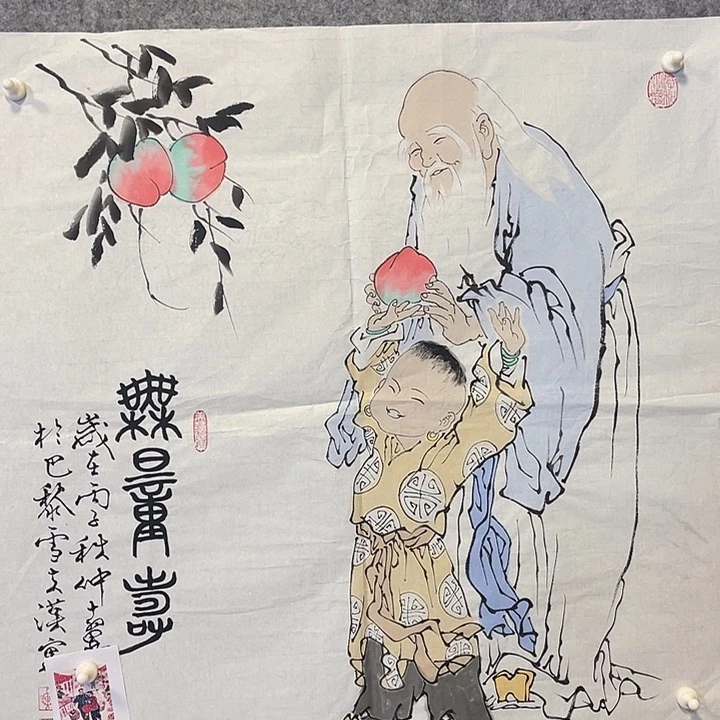 無量壽
歲在丙子秋仲
於巴黎雪之漢